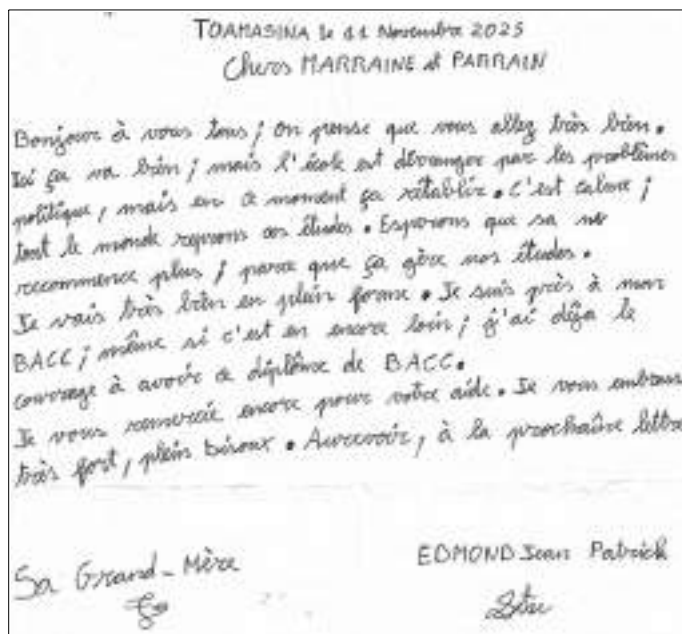 TOAMASINA le 11 Novembre 2025
Chers MARRAINE et PARRAIN
Bonjour à vous tous ; On pense que vous allez très bien.
Ici ça va bien ; mais l'école est déranger par les problèmes
politique, mais en ce moment ça rétablir. C'est calme ;
tout le monde reprons ces études. Esperons que sa ne
recommence plus ; parce que ça gère nos études.
Je vais très bien en plein forme. Je suis près à mon
BACC ; même si c'est en encore loin ; j'ai déja le
courrage à avoir ce diplôme de BACC.
Je vous remercie encore pour votre aide. Je vous embrass
très fort, plein bisoux. Aurevoir, à la prochaîne lettre
Sa Grand-Mère
EDMOND Jean Patrick